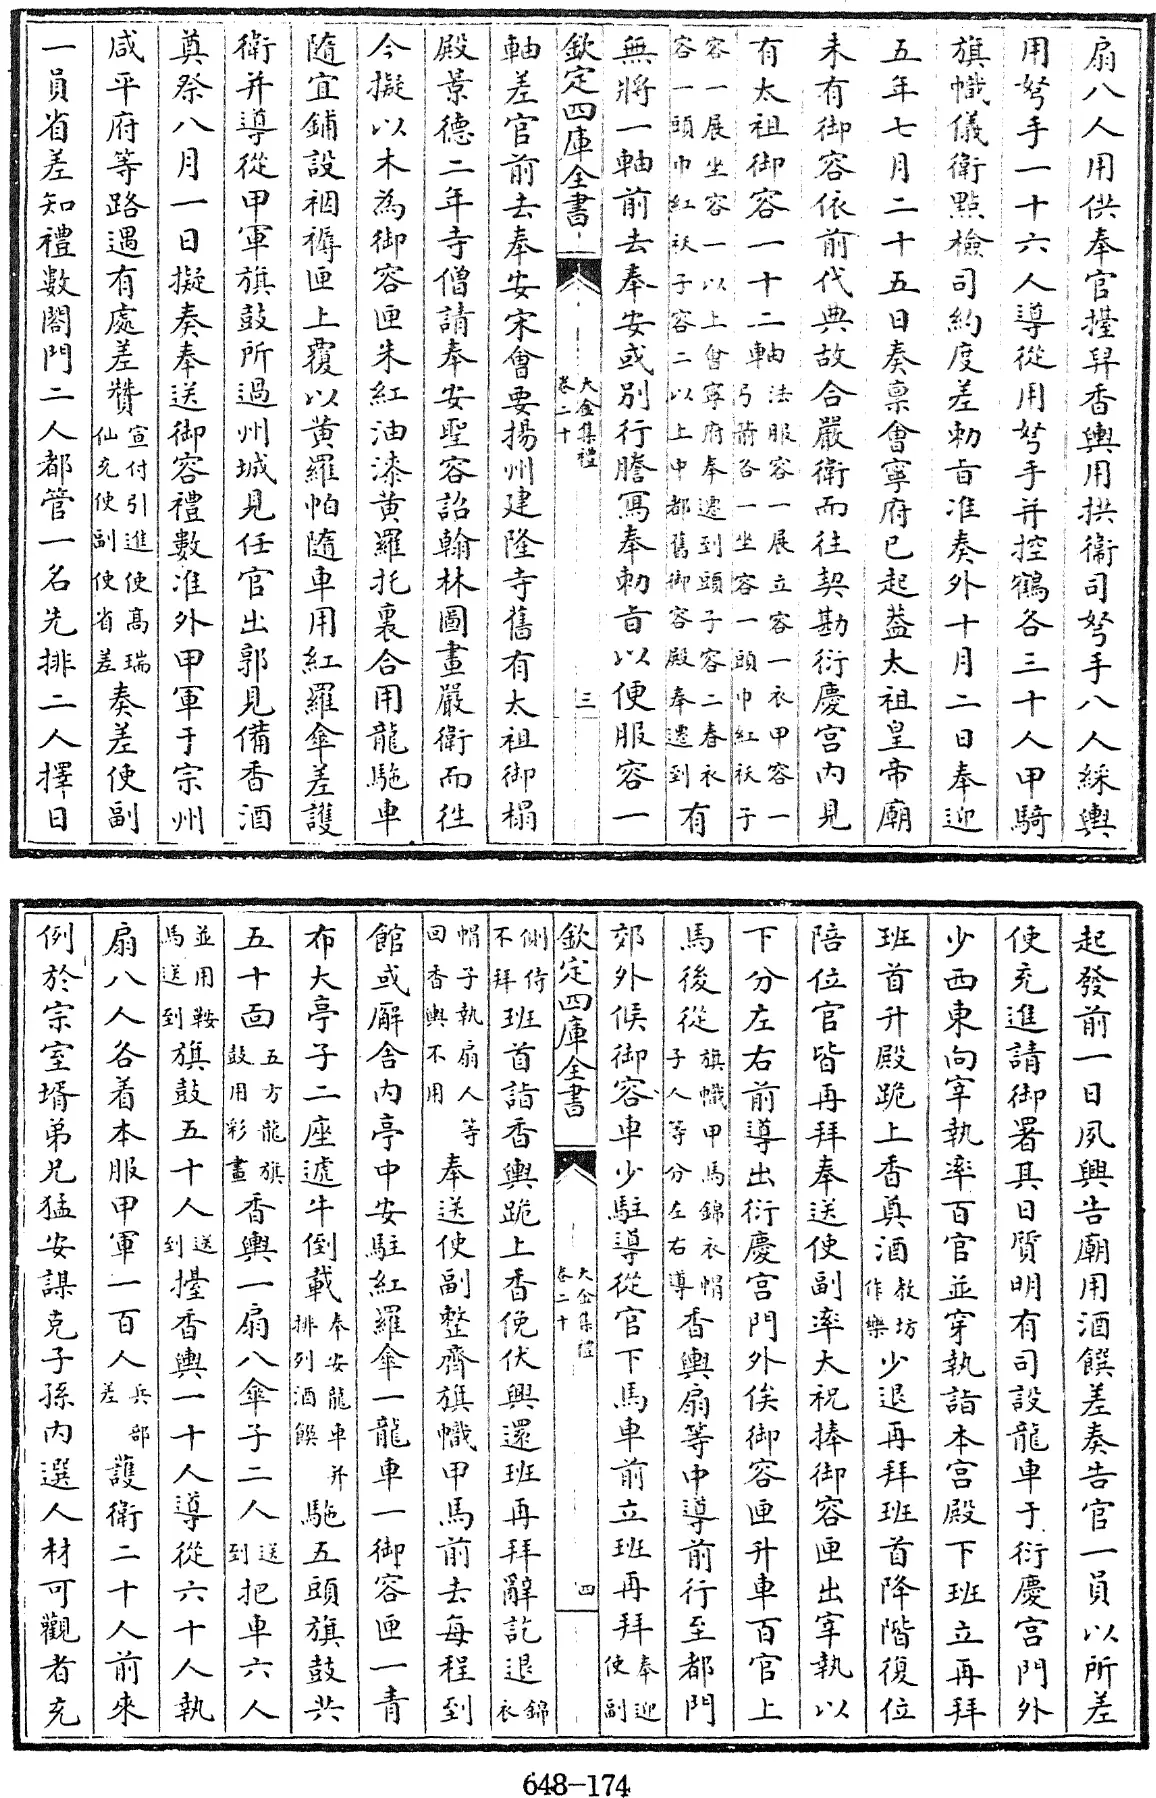 扇八人用供奉官擡舁香輿用拱衛司弩手八人綵輿
用弩手一十六人導從用弩手并控鶴各三十人甲騎
旗幟儀衛點檢司約度差勅旨准奏外十月二日奉迎
五年七月二十五日奏禀會寧府已起葢太祖皇帝廟
未有御容依前代典故合嚴衛而往契勘衍慶宮内見
有太祖御容一十二軸法服容一展立容一衣甲容一弓箭各一坐容一頭巾紅袄子
容一展坐容一以上會寧府奉遷到頭子容二春衣容一頭巾紅袄子容二以上中都舊御容殿奉遷到有
無將一軸前去奉安或别行謄寫奉勅旨以便服容一
欽定四庫全書 大金集禮 卷二十 三
軸差官前去奉安宋會要揚州建隆寺舊有太祖御榻
殿景德二年寺僧請奉安聖容詔翰林圖畫嚴衛而徃
今擬以木為御容匣朱紅油漆黄羅托裏合用龍駞車
隨宜鋪設裀褥匣上覆以黄羅帕隨車用紅羅傘差護
衛并導從甲軍旗鼓所過州城見任官出郭見備香酒
奠祭八月一日擬奏奉送御容禮數准外甲軍于宗州
咸平府等路遇有處差贊宣付引進使高瑞仙充使副使省差奏差使副
一員省差知禮數閤門二人都管一名先排二人擇日
起發前一日夙興告廟用酒饌差奏告官一員以所差
使充進請御署其日質明有司設龍車于衍慶宮門外
少西東向宰執率百官並穿執詣本宮殿下班立再拜
班首升殿跪上香奠酒教坊作樂少退再拜班首降階復位
陪位官皆再拜奉送使副率大祝捧御容匣出宰執以
下分左右前導出衍慶宮門外俟御容匣升車百官上
馬後從旗幟甲馬錦衣帽子人等分左右導香輿扇等中導前行至都門
郊外候御容車少駐導從官下馬車前立班再拜奉迎使副
欽定四庫全書 大金集禮 卷二十 四
側侍不拜班首詣香輿跪上香俛伏興還班再拜辭訖退錦衣
帽子執扇人等回香輿不用奉送使副整齊旗幟甲馬前去每程到
館或廨舍内亭中安駐紅羅傘一龍車一御容匣一青
布大亭子二座遞牛倒載奉安龍車并排列酒饌駞五頭旗鼓共
五十面五方龍旗鼓用彩畫香輿一扇八傘子二人送到把車六人
並用鞍馬送到旗鼓五十人送到擡香輿一十人導從六十人執
扇八人各着本服甲軍一百人兵部差護衛二十人前來
例於宗室壻弟兄猛安謀克子孫内選人材可觀者充
648-174